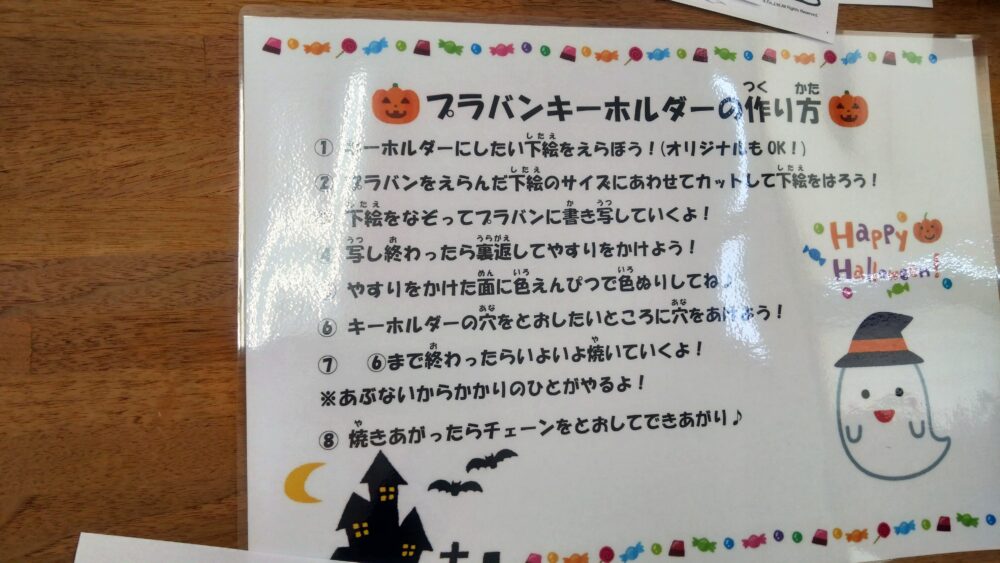 プラバンキーホルダーの作り方
つく かた
① キーホルダーにしたい下絵をえらぼう！(オリジナルもOK！)
したえ
② プラバンをえらんだ下絵のサイズにあわせてカットして下絵をはろう！
したえ したえ
下絵をなぞってプラバンに書き写していくよ！
したえ か うつ
④ 写し終わったら裏返してやすりをかけよう！
うつ お うらがえ
やすりをかけた面に色えんぴつで色ぬりしてね♪
めん いろ いろ
⑥ キーホルダーの穴をとおしたいところに穴をあけよう！
あな あな
⑦ ⑥まで終わったらいよいよ焼いていくよ！
お や
※あぶないからかかりのひとがやるよ！
⑧ 焼きあがったらチェーンをとおしてできあがり♪
や
Happy
Halloween!